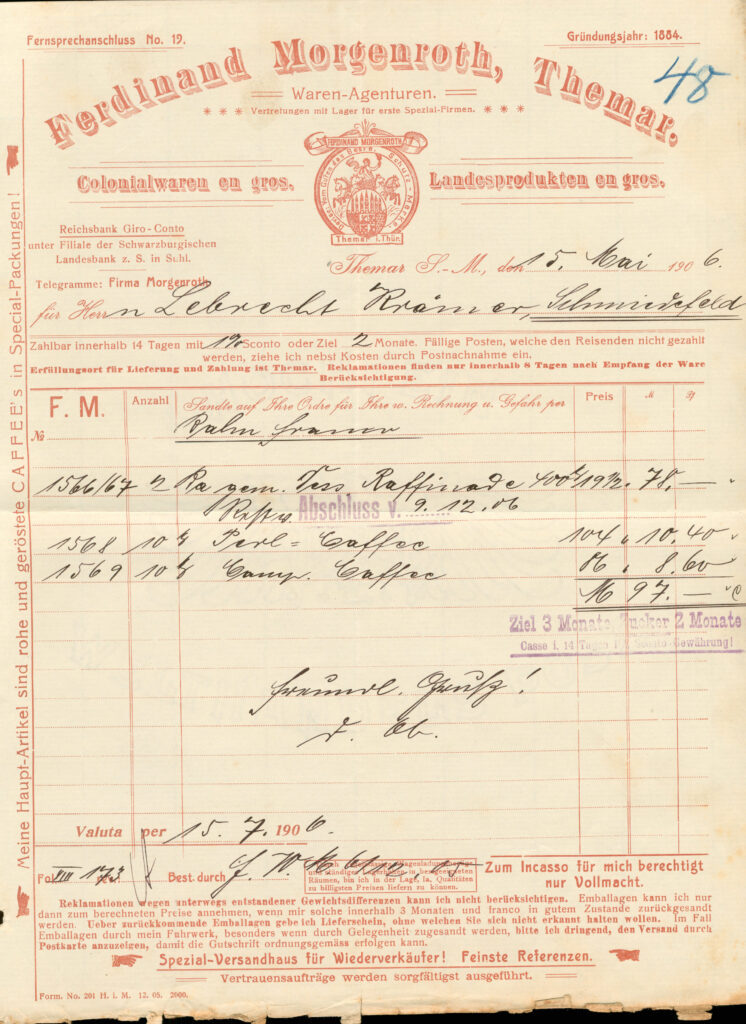 Fernsprechanschluss No. 19.
Gründungsjahr: 1884.
48
Ferdinand Morgenroth, Themar.
Waren-Agenturen.
* * * Vertretungen mit Lager für erste Spezial-Firmen. * * *
FERDINAND MORGENROTH
Schutz-Marke
Themar i. Thür.
Colonialwaren en gros.
Landesprodukten en gros.
Reichsbank Giro-Conto
unter Filiale der Schwarzburgischen
Landesbank z. S. in Suhl.
Telegramme: Firma Morgenroth
Themar S.-M., den 15. Mai 1906.
für Herrn Lebrecht Krämer, Schmiedefeld
Zahlbar innerhalb 14 Tagen mit 1% Sconto oder Ziel 2 Monate. Fällige Posten, welche den Reisenden nicht gezahlt
werden, ziehe ich nebst Kosten durch Postnachnahme ein.
Erfüllungsort für Lieferung und Zahlung ist Themar. Reklamationen finden nur innerhalb 8 Tagen nach Empfang der Ware
Berücksigtigung.
F. M.
No
Anzahl
Sandte auf Ihre Ordre für Ihre w. Rechnung u. Gefahr per
Preis
M
Pf
franco
1566/67 2 Pa gem. Raffinade 400 19 1/2. 78.—
Abschluss v. 9.12.06
1568 10 Perl-Caffee 104 " 10.40
1569 10 Camp. Caffee 86 " 8.60
M 97.—
Ziel 3 Monate, Zucker 2 Monate
Casse i. 14 Tagen Sconto-Gewährung!
freundl. Gruß!
d. Ob.
Valuta per 15.7.1906
Fol. VIII 173
Best. durch
Räumen, bin ich in der Lage, la. Qualitäten
zu billigsten Preisen liefern zu können.
Zum Incasso für mich berechtigt
nur Vollmacht.
Reklamationen wegen unterwegs entstandener Gewichtsdifferenzen kann ich nicht berücksigtigen. Emballagen kann ich nur
dann zum berechneten Preise annehmen, wenn mir solche innerhalb 3 Monaten und franco in gutem Zustande zurückgesandt
werden. Ueber zurückkommende Emballagen gebe ich Lieferschein, ohne welchen Sie sich nicht erkannt halten wollen. Im Fall
Emballagen durch mein Fuhrwerk, besonders wenn durch Gelegenheit zugesandt werden, bitte ich dringend, den Versand durch
Postkarte anzuzeigen, damit die Gutschrift ordnungsgemäss erfolgen kann.
Spezial-Versandhaus für Wiederverkäufer! Feinste Referenzen.
Vertrauensaufträge werden sorgfältigst ausgeführt.
Form. No. 201 H. i. M. 12. 05. 2000.
Meine Haupt-Artikel sind rohe und geröstete CAFFEE's in Special-Packungen!